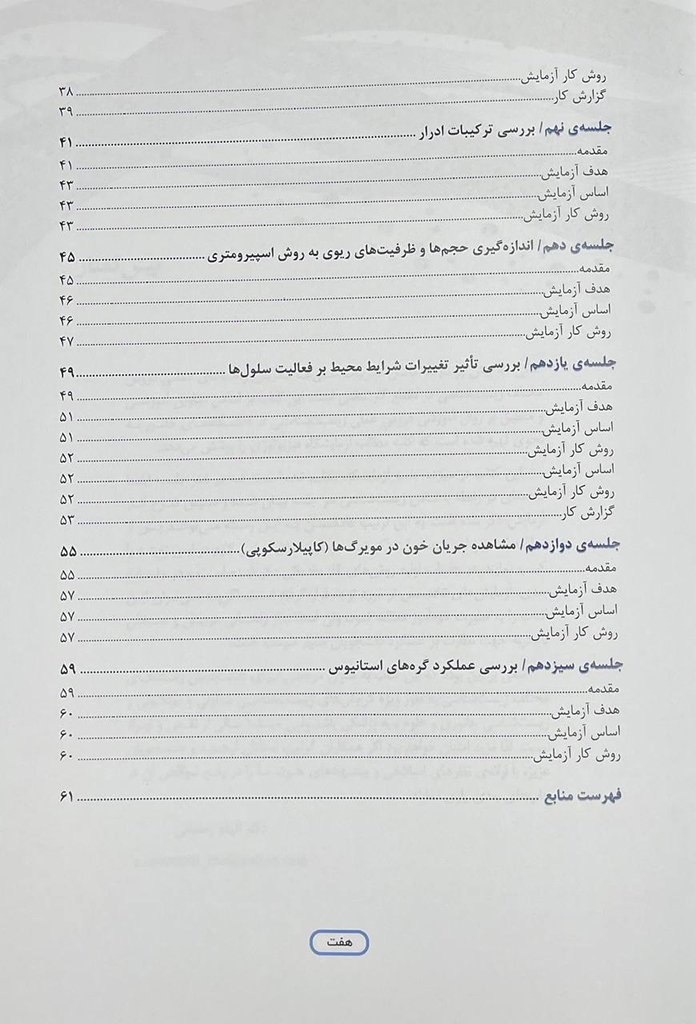 روش کار آزمایش ........ ۳۸
گزارش کار ........ ۳۹
جلسه‌ی نهم/ بررسی ترکیبات ادرار ........ ۴۱
مقدمه ........ ۴۱
هدف آزمایش ........ ۴۳
اساس آزمایش ........ ۴۳
روش کار آزمایش ........ ۴۳
جلسه‌ی دهم/ اندازه‌گیری حجم‌ها و ظرفیت‌های ریوی به روش اسپیرومتری ........ ۴۵
مقدمه ........ ۴۵
هدف آزمایش ........ ۴۶
اساس آزمایش ........ ۴۶
روش کار آزمایش ........ ۴۷
جلسه‌ی یازدهم/ بررسی تأثیر تغییرات شرایط محیط بر فعالیت سلول‌ها ........ ۴۹
مقدمه ........ ۴۹
هدف آزمایش ........ ۵۱
اساس آزمایش ........ ۵۱
روش کار آزمایش ........ ۵۲
اساس آزمایش ........ ۵۲
روش کار آزمایش ........ ۵۲
گزارش کار ........ ۵۳
جلسه‌ی دوازدهم/ مشاهده جریان خون در مویرگ‌ها (کاپیلارسکوپی) ........ ۵۵
مقدمه ........ ۵۵
هدف آزمایش ........ ۵۷
اساس آزمایش ........ ۵۷
روش کار آزمایش ........ ۵۷
جلسه‌ی سیزدهم/ بررسی عملکرد گره‌های استانیوس ........ ۵۹
مقدمه ........ ۵۹
هدف آزمایش ........ ۶۰
اساس آزمایش ........ ۶۰
روش کار آزمایش ........ ۶۰
فهرست منابع ........ ۶۱
هفت